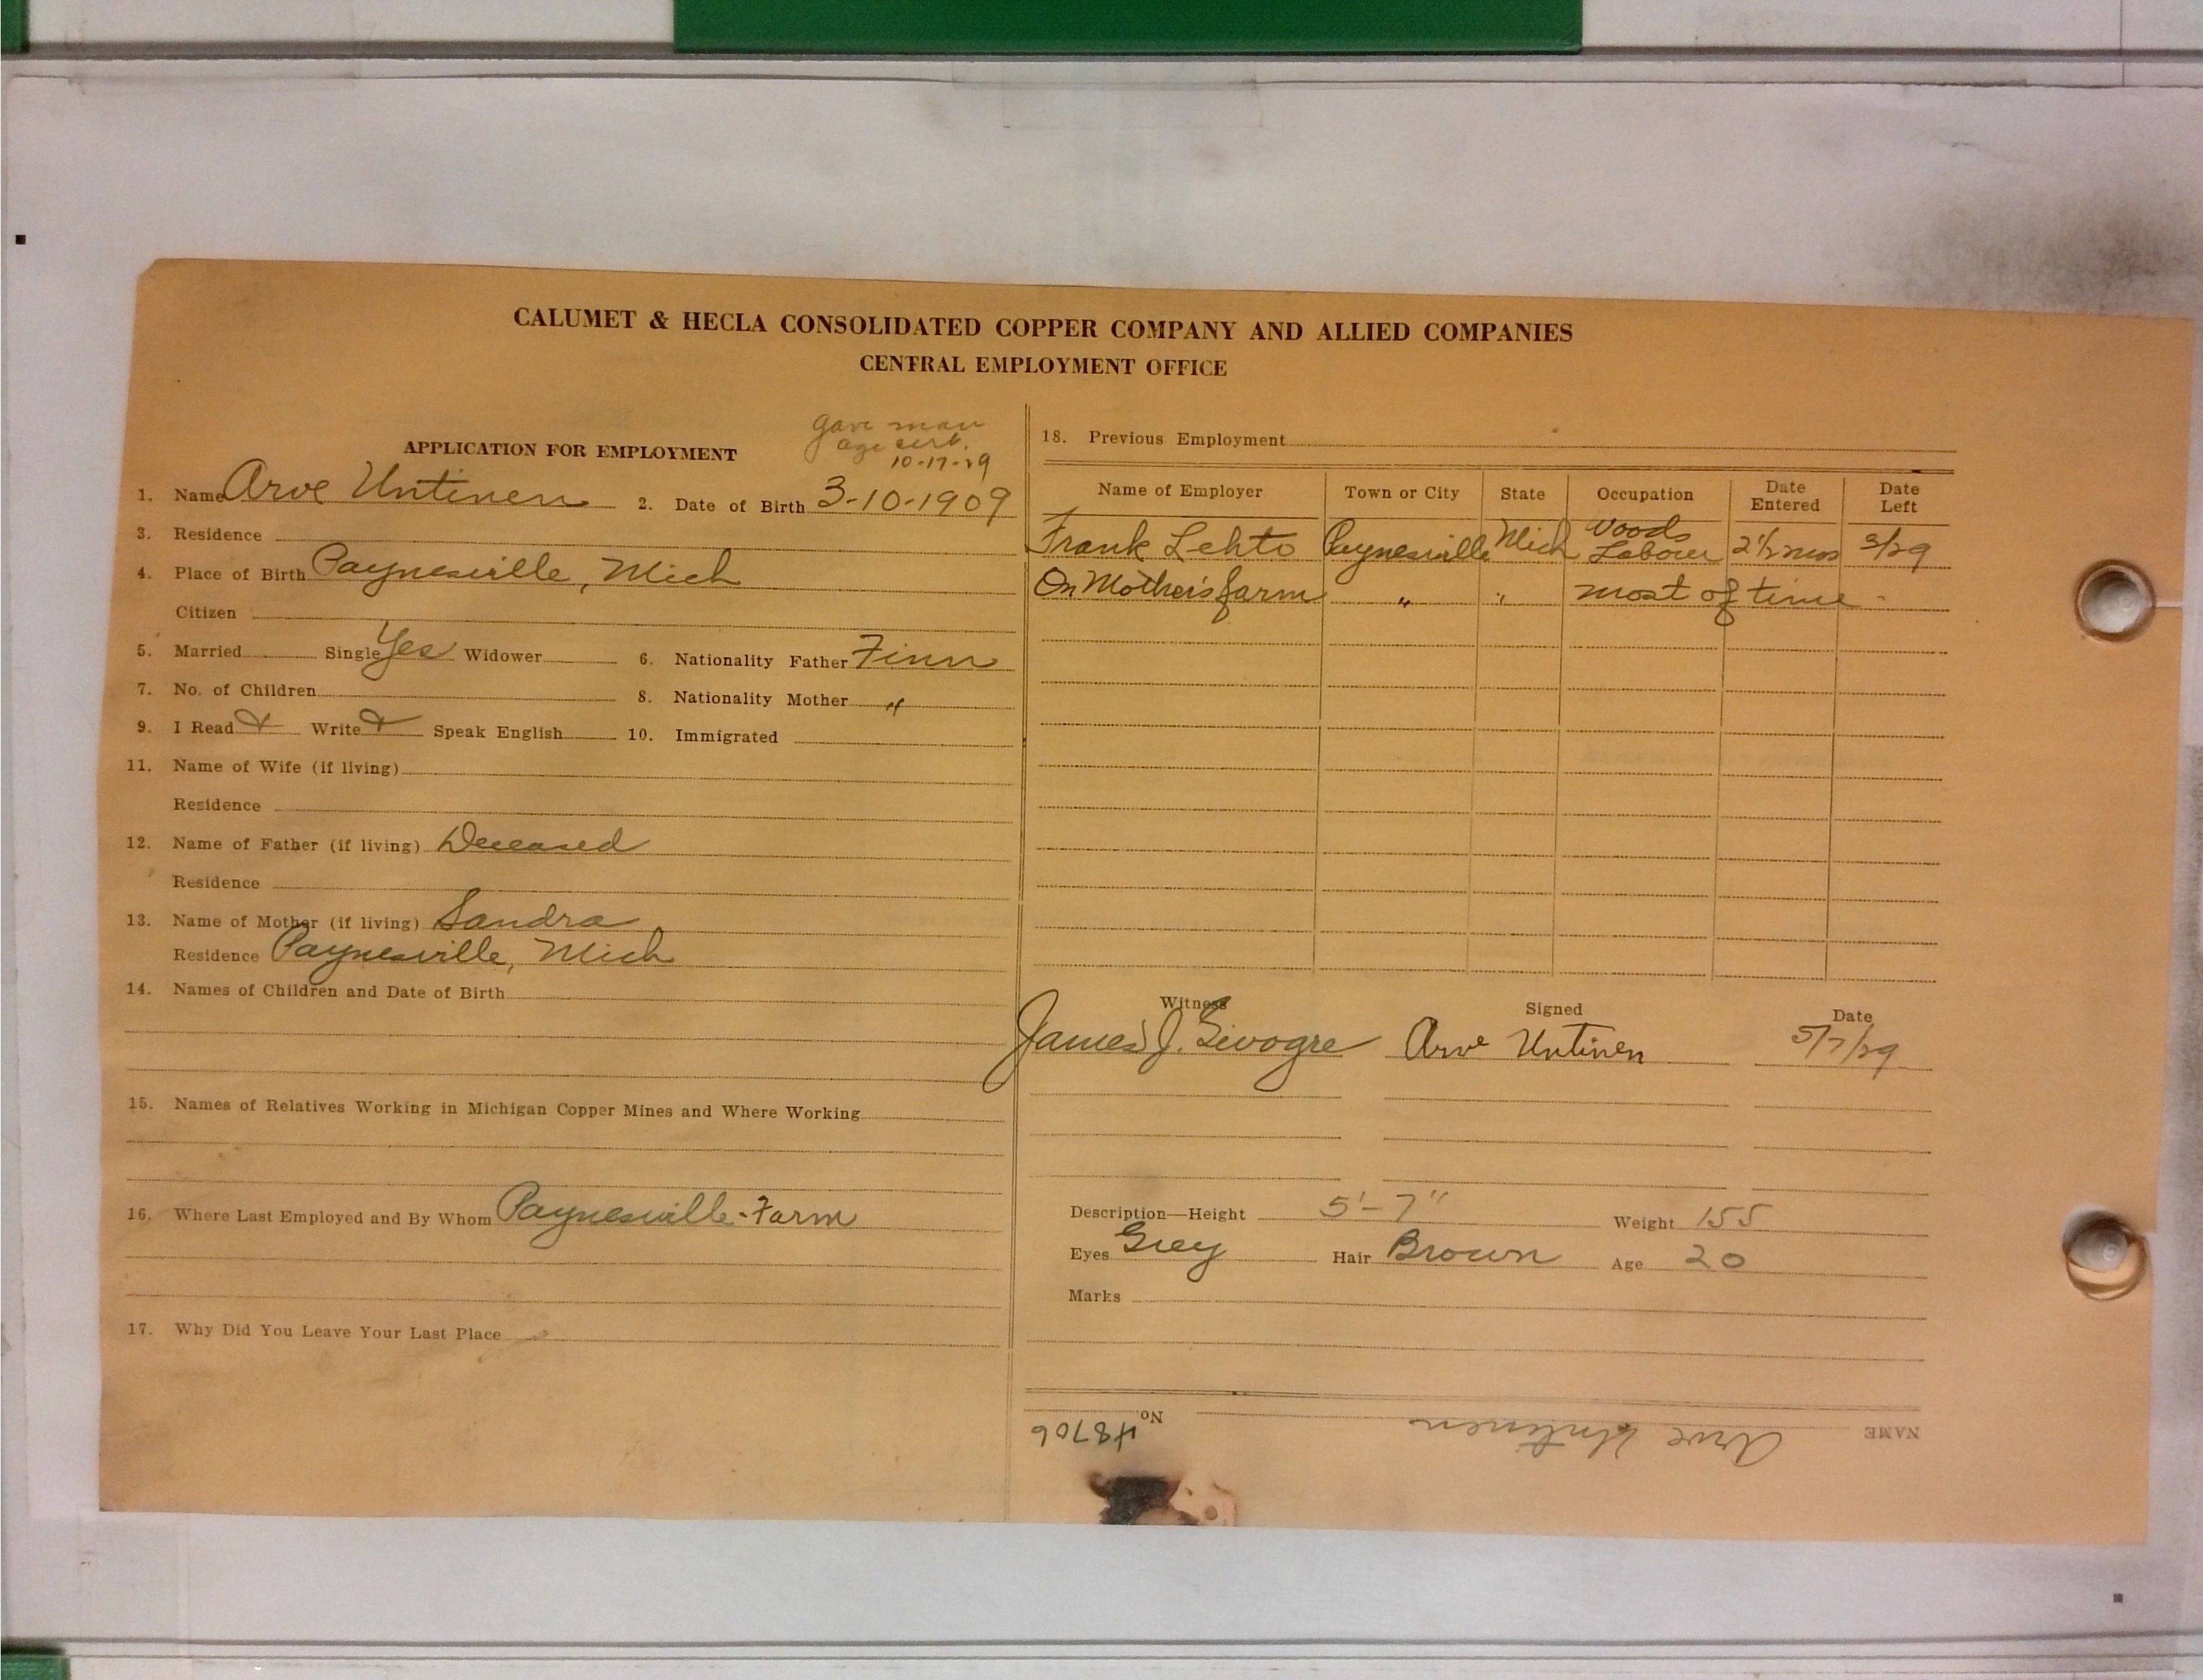 CALUMET & HECLA CONSOLIDATED COPPER COMPANY AND ALLIED COMPANIES
CENTRAL EMPLOYMENT OFFICE
APPLICATION FOR EMPLOYMENT
gave man
age cert.
10-17-29
1. Name Arve Untinen 2. Date of Birth 3-10-1909
3. Residence
4. Place of Birth Paynesville, Mich
Citizen
5. Married Single Yes Widower 6. Nationality Father Finn
7. No. of Children 8. Nationality Mother "
9. I Read Write Speak English 10. Immigrated
11. Name of Wife (if living)
Residence
12. Name of Father (if living) Deceased
Residence
13. Name of Mother (if living) Sandra
Residence Paynesville, Mich
14. Names of Children and Date of Birth
15. Names of Relatives Working in Michigan Copper Mines and Where Working
16. Where Last Employed and By Whom Paynesville - Farm
17. Why Did You Leave Your Last Place
18. Previous Employment
Name of Employer Town or City State Occupation Date Entered Date Left
Frank Lehto Paynesville Mich Woods Labourer 2 1/2 mos 3/29
On Mother's farm " " most of time -
Witness Signed Date
James J. Arve Untinen 5/7/29
Description—Height 5'-7" Weight 155
Eyes Grey Hair Brown Age 20
Marks
NAME Arve Untinen No 48706